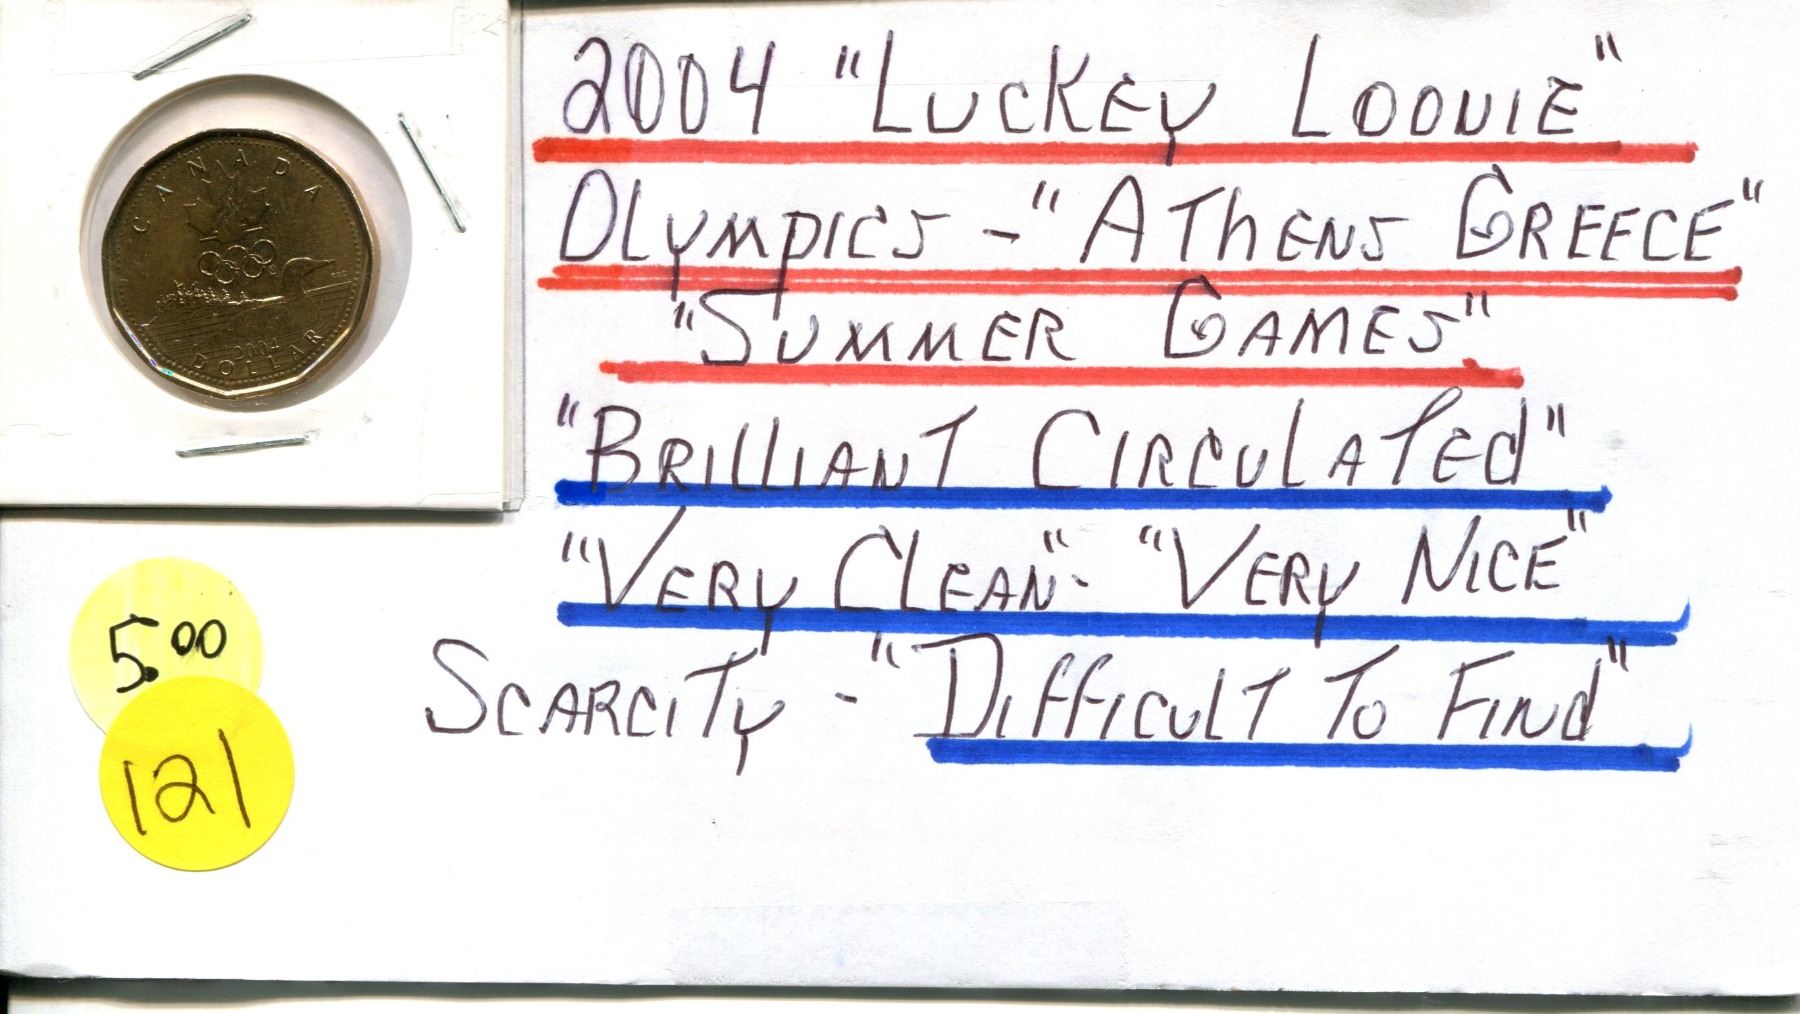 CANADA
2004
DOLLAR
2004 "LUCKEY LOONIE"
OLYMPICS - "ATHENS GREECE"
"SUMMER GAMES"
"BRILLIANT CIRCULATED"
"VERY CLEAN"- "VERY NICE"
SCARCITY - "DIFFICULT TO FIND"
5.00
121